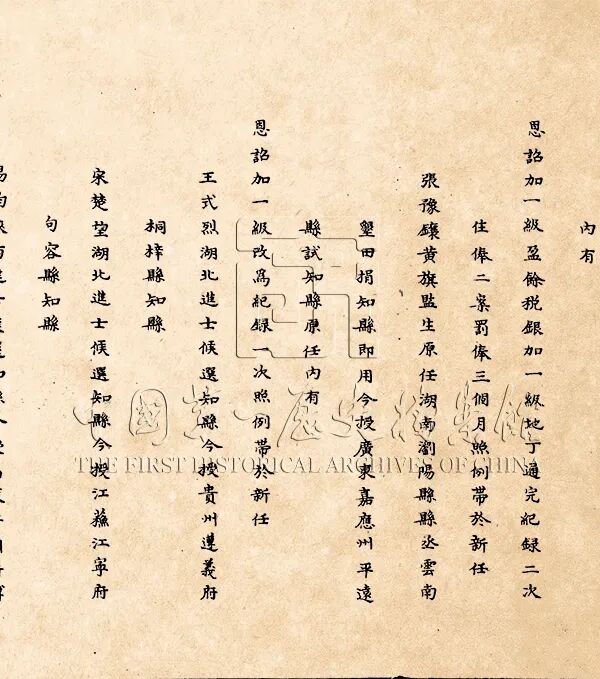 內有
恩詔加一級盈餘稅銀加一級地丁通完紀錄二次
住俸二案罰俸三個月照例帶於新任
張豫鑲黃旗監生原任湖南瀏陽縣縣丞雲南
墾田捐知縣即用今授廣東嘉應州平遠
縣試知縣原任內有
恩詔加一級改爲紀錄一次照例帶於新任
王式烈湖北進士候選知縣今授貴州遵義府
桐梓縣知縣
宋楚望湖北進士候選知縣今授江蘇江寧府
句容縣知縣
中國第一歷史檔案館
THE FIRST HISTORICAL ARCHIVES OF CHINA